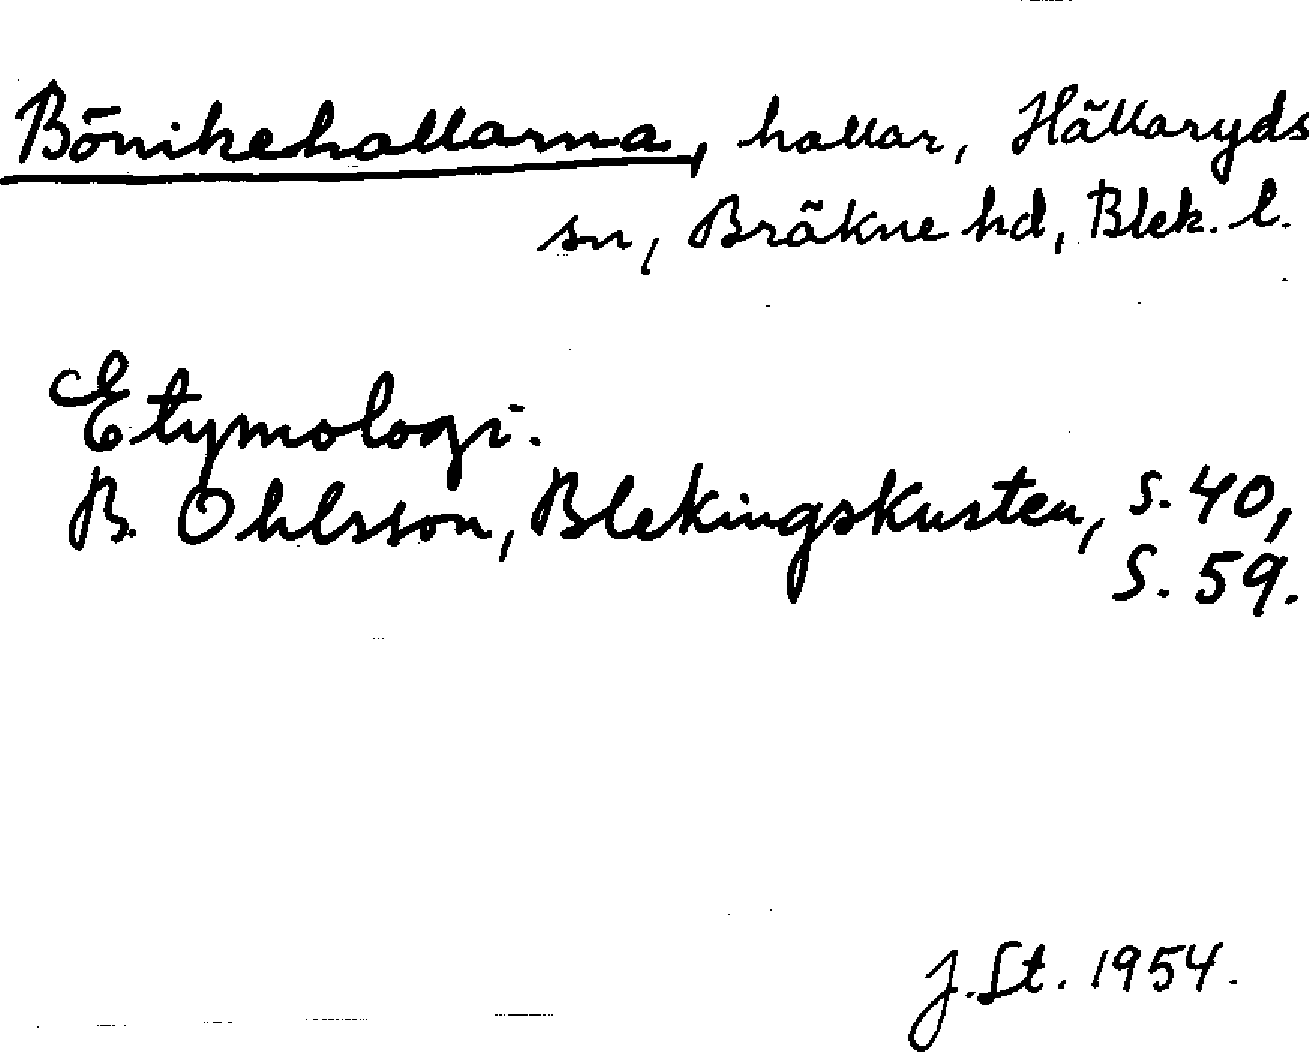 Bönikehallarna, hallar, Hällaryds
sn, Bräkne hd, Blek. l.
Etymologi.
B. Ohlsson, Blekingskusten, s. 40,
S. 59.
J. St. 1954.